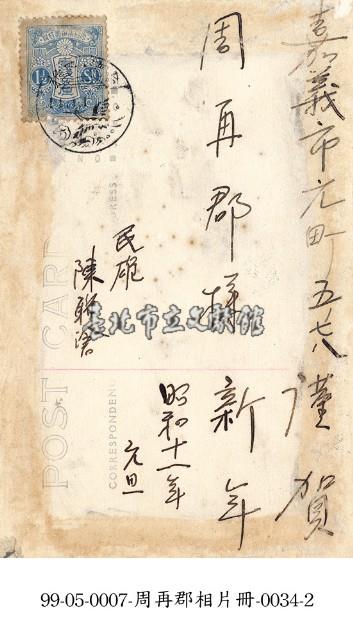 嘉義市元町五ノ八
謹賀
周再郡様
新年
民雄
陳聯滄
昭和十一年
元旦
1½ Sn
POST CARD
CORRESPONDEN
RESS
臺北市立文獻館
99-05-0007-周再郡相片冊-0034-2